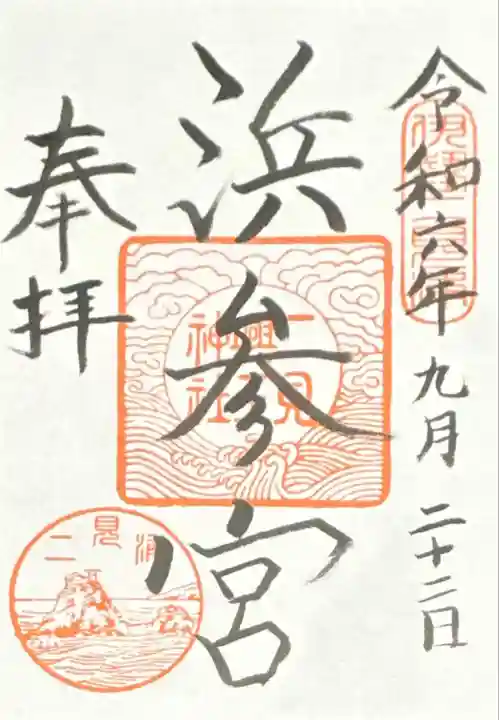 令和六年九月二十二日
浜参宮
二見
興玉
神社
奉拝
二見浦